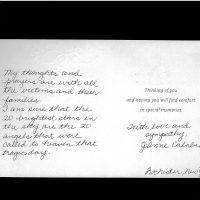 My thoughts and
prayers are with all
the victims and their
families.
I am sure that the
20 brightest stars in
the sky are the 20
angels that were
called to heaven that
tragic day.
Thinking of you
and hoping you will find comfort
in special memories.
With love and
sympathy,
Rochester, New